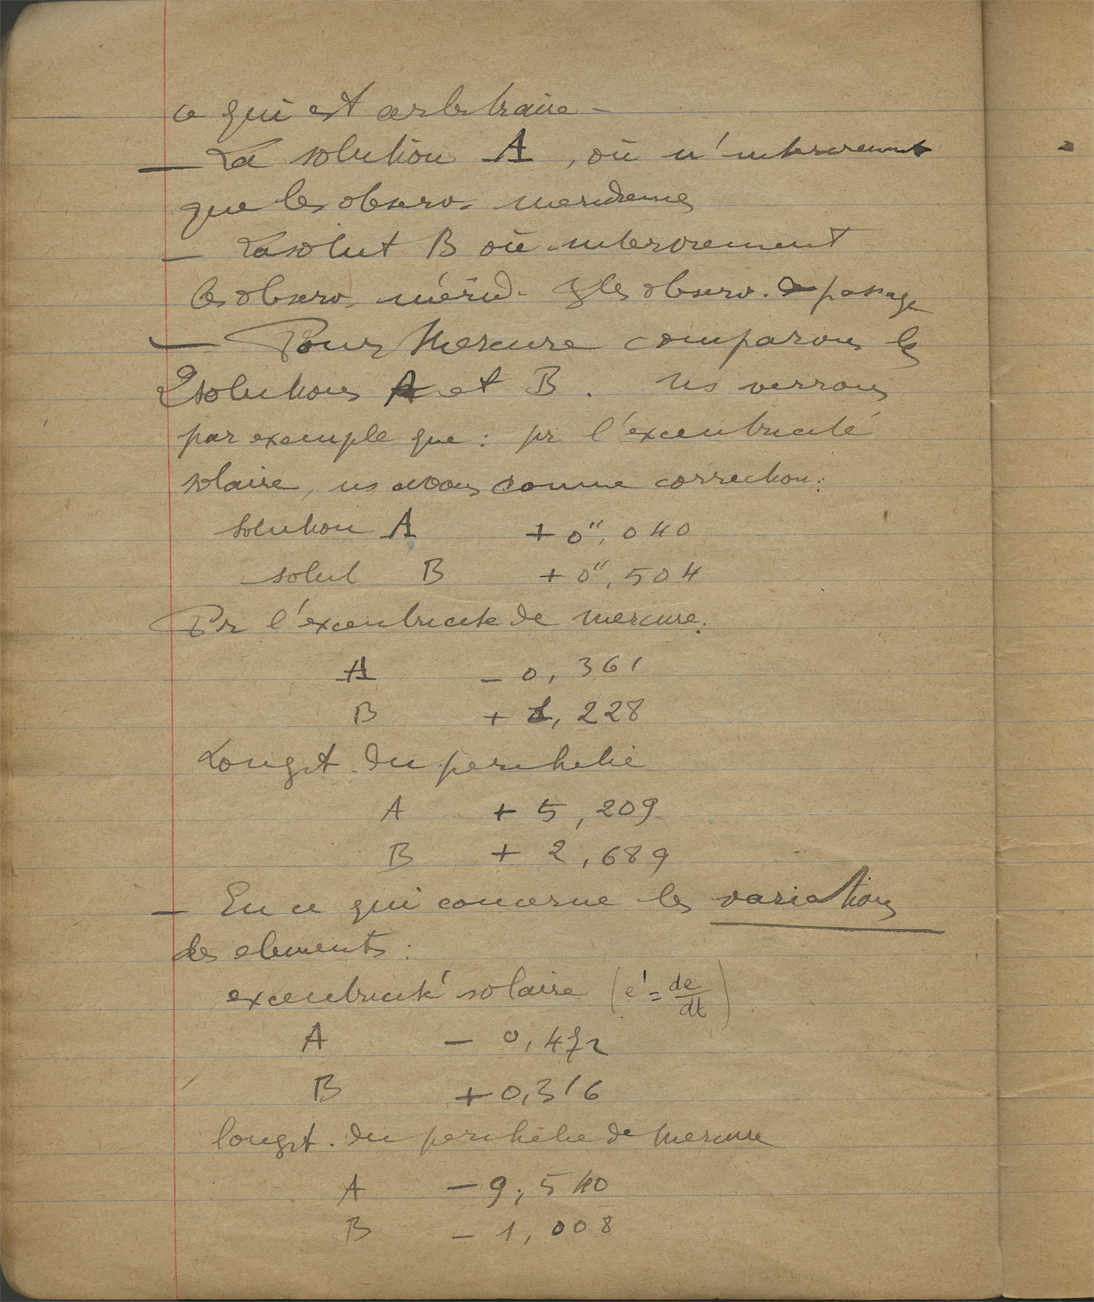 ce qui est arbitraire -
— La solution A, où n'interviennent
que les observ. meridiennes
— La solut B où interviennent
les observ. mérid. & les observ. de passage
— Pour Mercure comparons les
2 solutions A et B. ns verrons
par exemple que : pr l'excentricité
solaire, ns avons comme correction :
solution A + 0", 040
solut B + 0", 504
Pr l'excentricité de mercure.
A - 0, 361
B + 1, 228
Longit. du perihelie
A + 5, 209
B + 2, 689
— En ce qui concerne les variations
des elements :
excentricité solaire (e' = de/dt)
A - 0, 472
B + 0, 316
longit. du perihélie de mercure
A - 9, 540
B - 1, 008